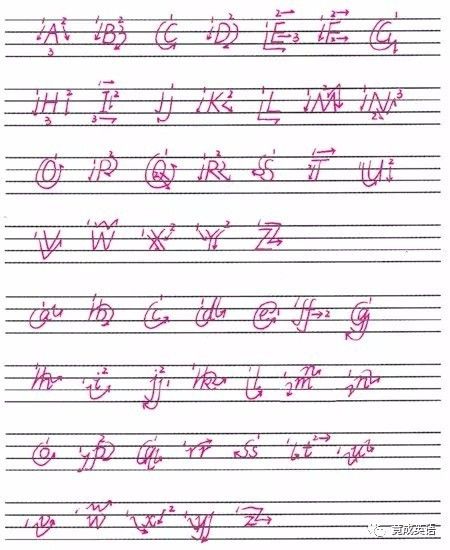 A B C D E F G
H I J K L M N
O P Q R S T U
V W X Y Z
a b c d e f g
h i j k l m n
o p q r s t u
v w x y z
竟成英语